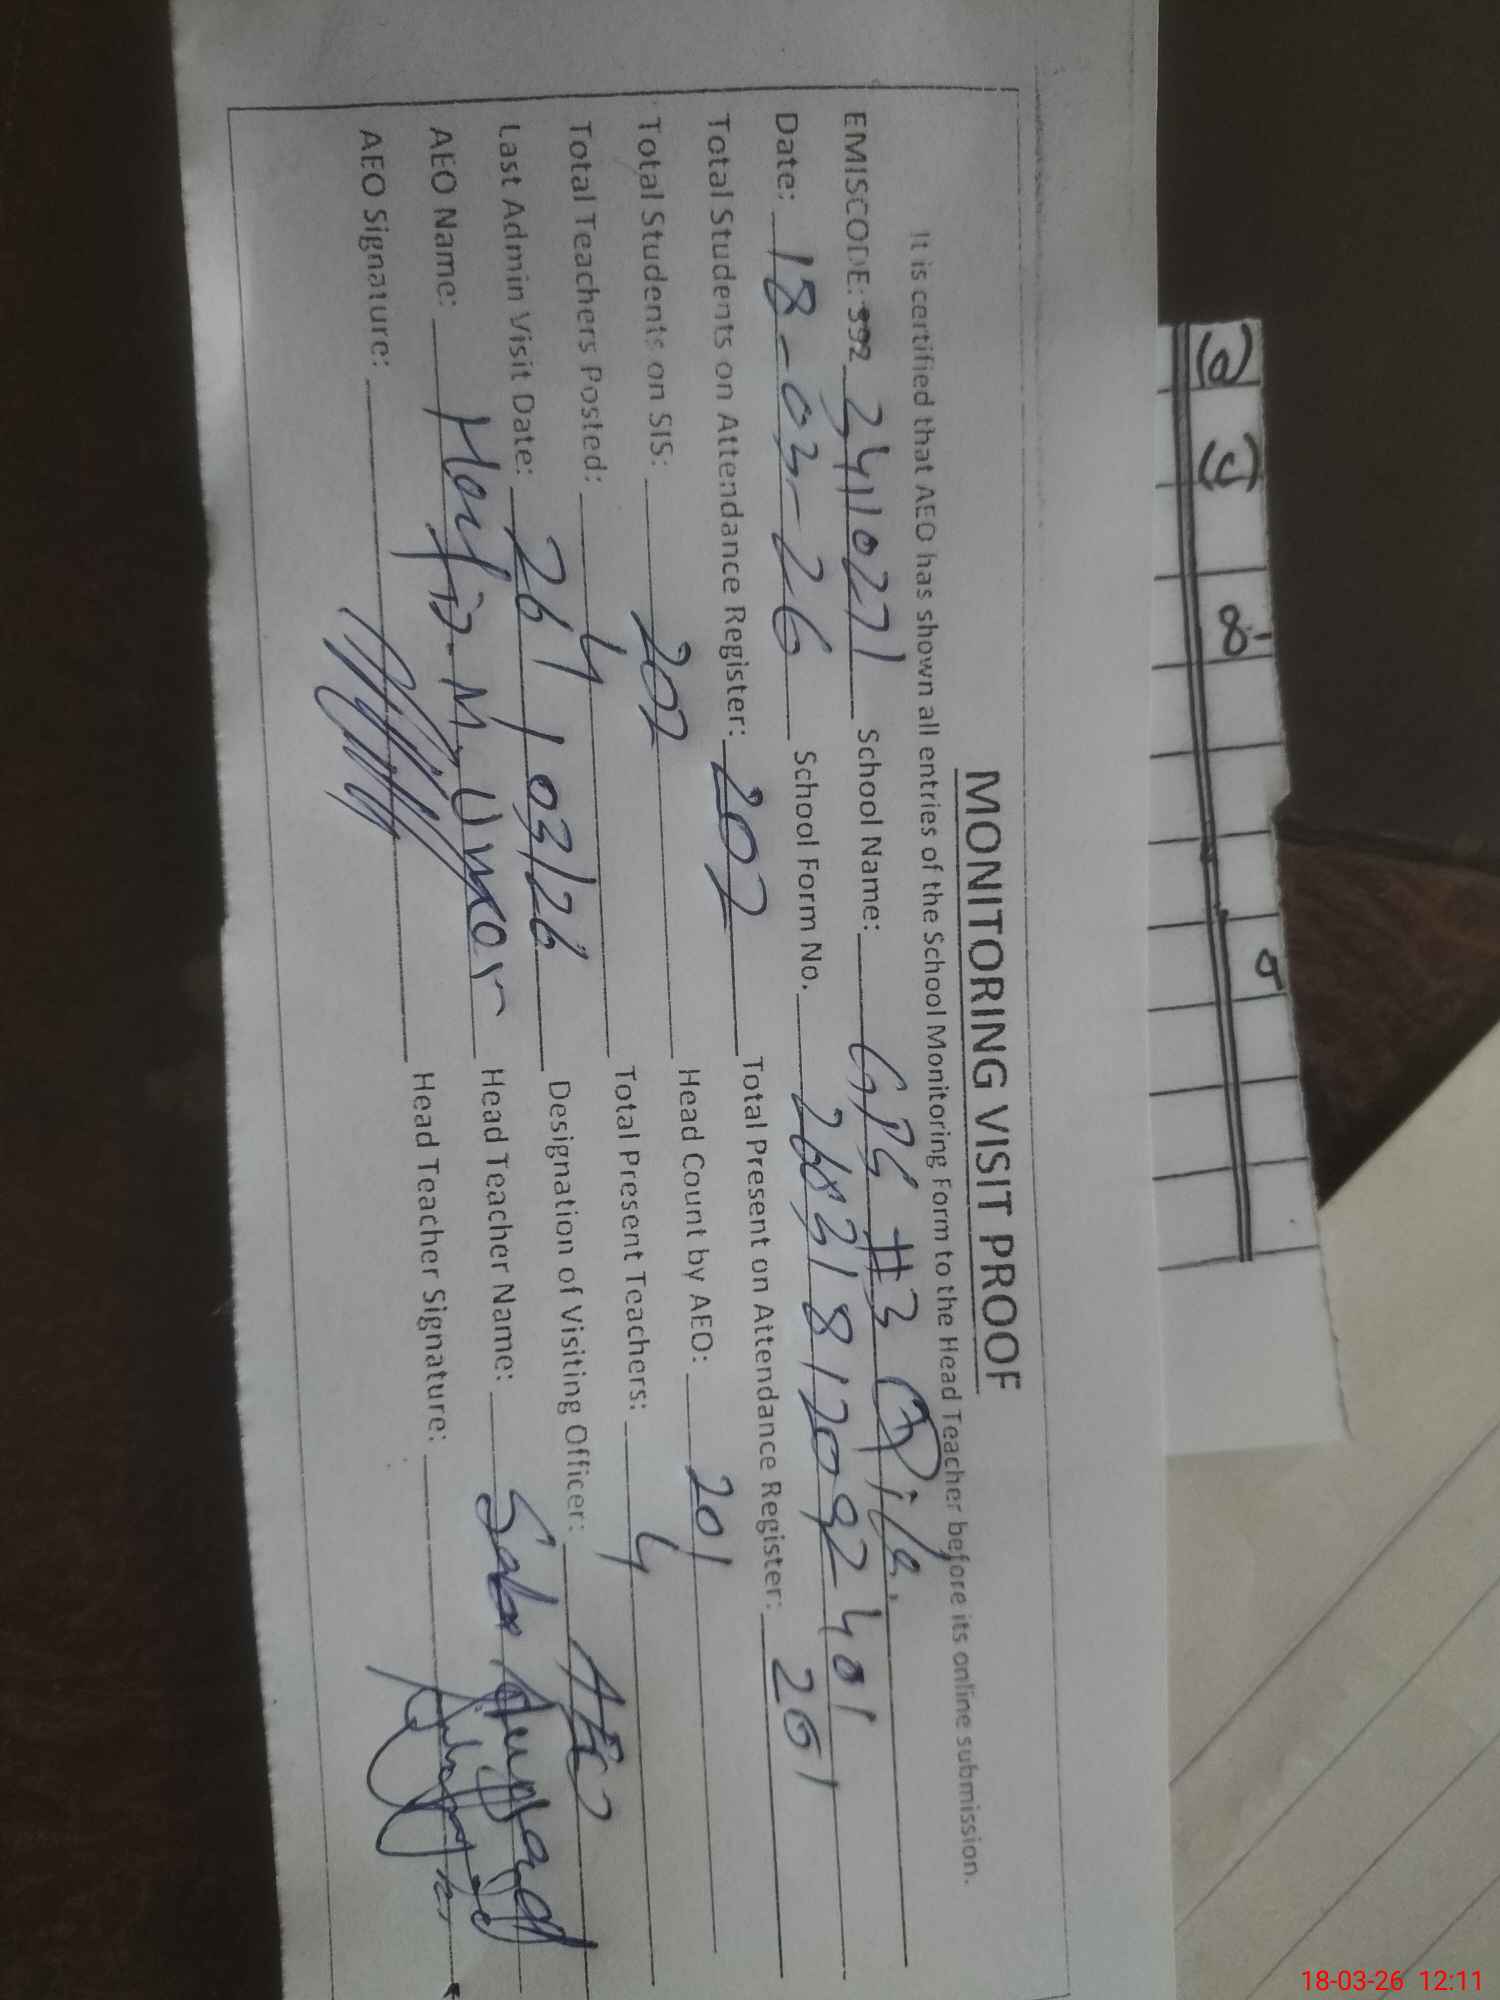 MONITORING VISIT PROOF
It is certified that AEO has shown all entries of the School Monitoring Form to the Head Teacher before its online submission.
EMISCODE: 392 3411027 School Name: GPS #3
Date: 18-03-26 School Form No. 26831812092401
Total Students on Attendance Register: 202 Total Present on Attendance Register: 201
Total Students on SIS: 202 Head Count by AEO: 201
Total Teachers Posted: 4 Total Present Teachers: 4
Last Admin Visit Date: 26/03/26 Designation of Visiting Officer: AEO
AEO Name: Hafiz M. Umar Head Teacher Name:
AEO Signature: Head Teacher Signature:
18-03-26 12:11